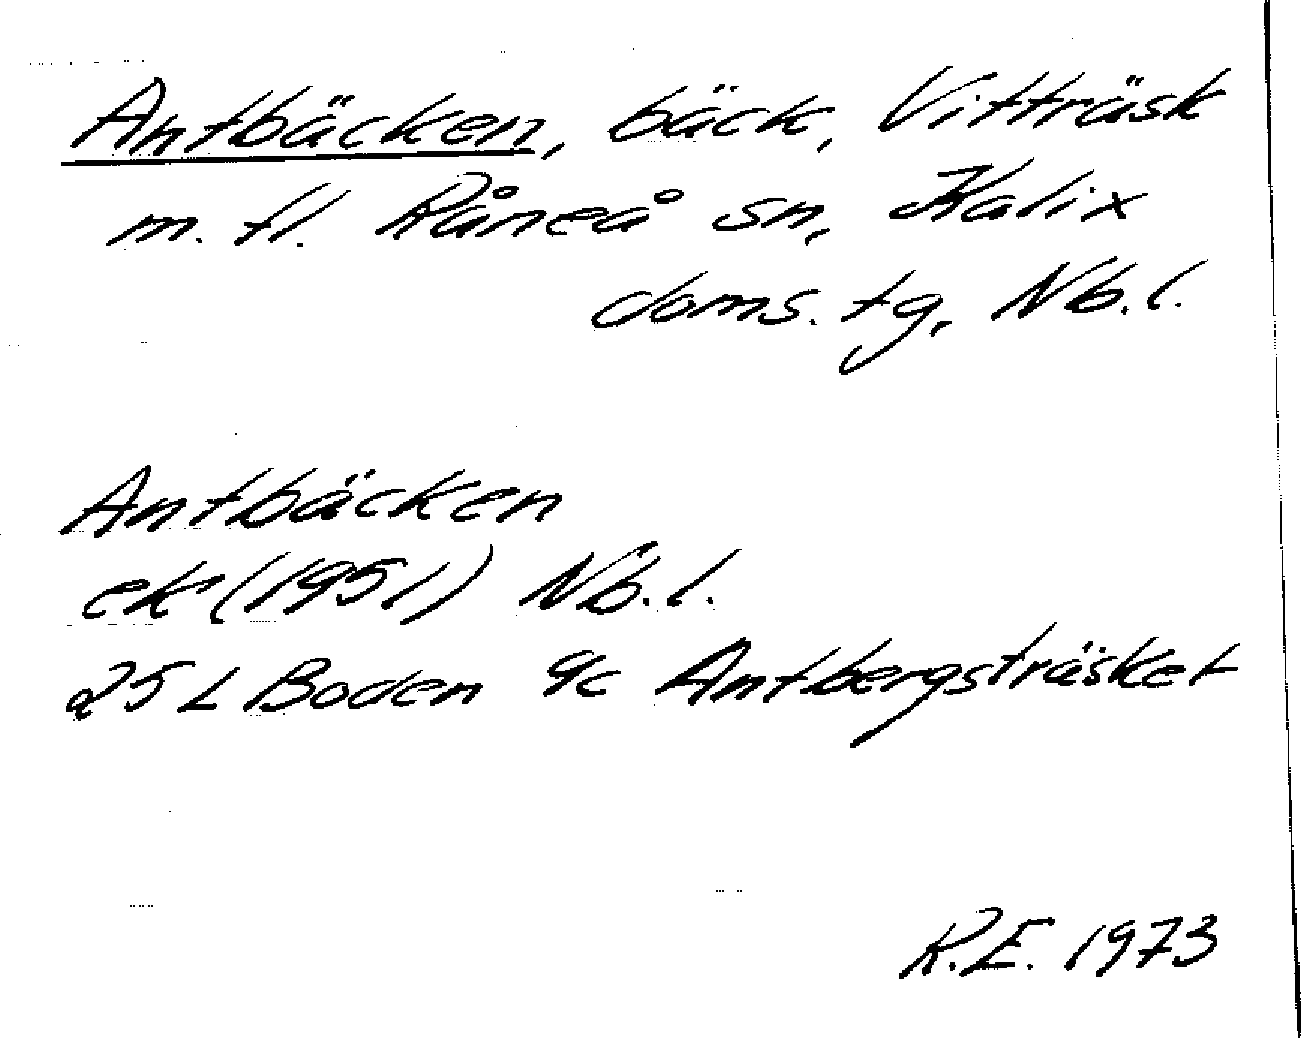 Antbäcken, bäck, Vitträsk
m. fl. Råneå sn, Kalix
doms. tg, Nb. l.
Antbäcken
ek (1951) Nb. l.
25 L Boden 9c Antbergsträsket
R.E. 1973